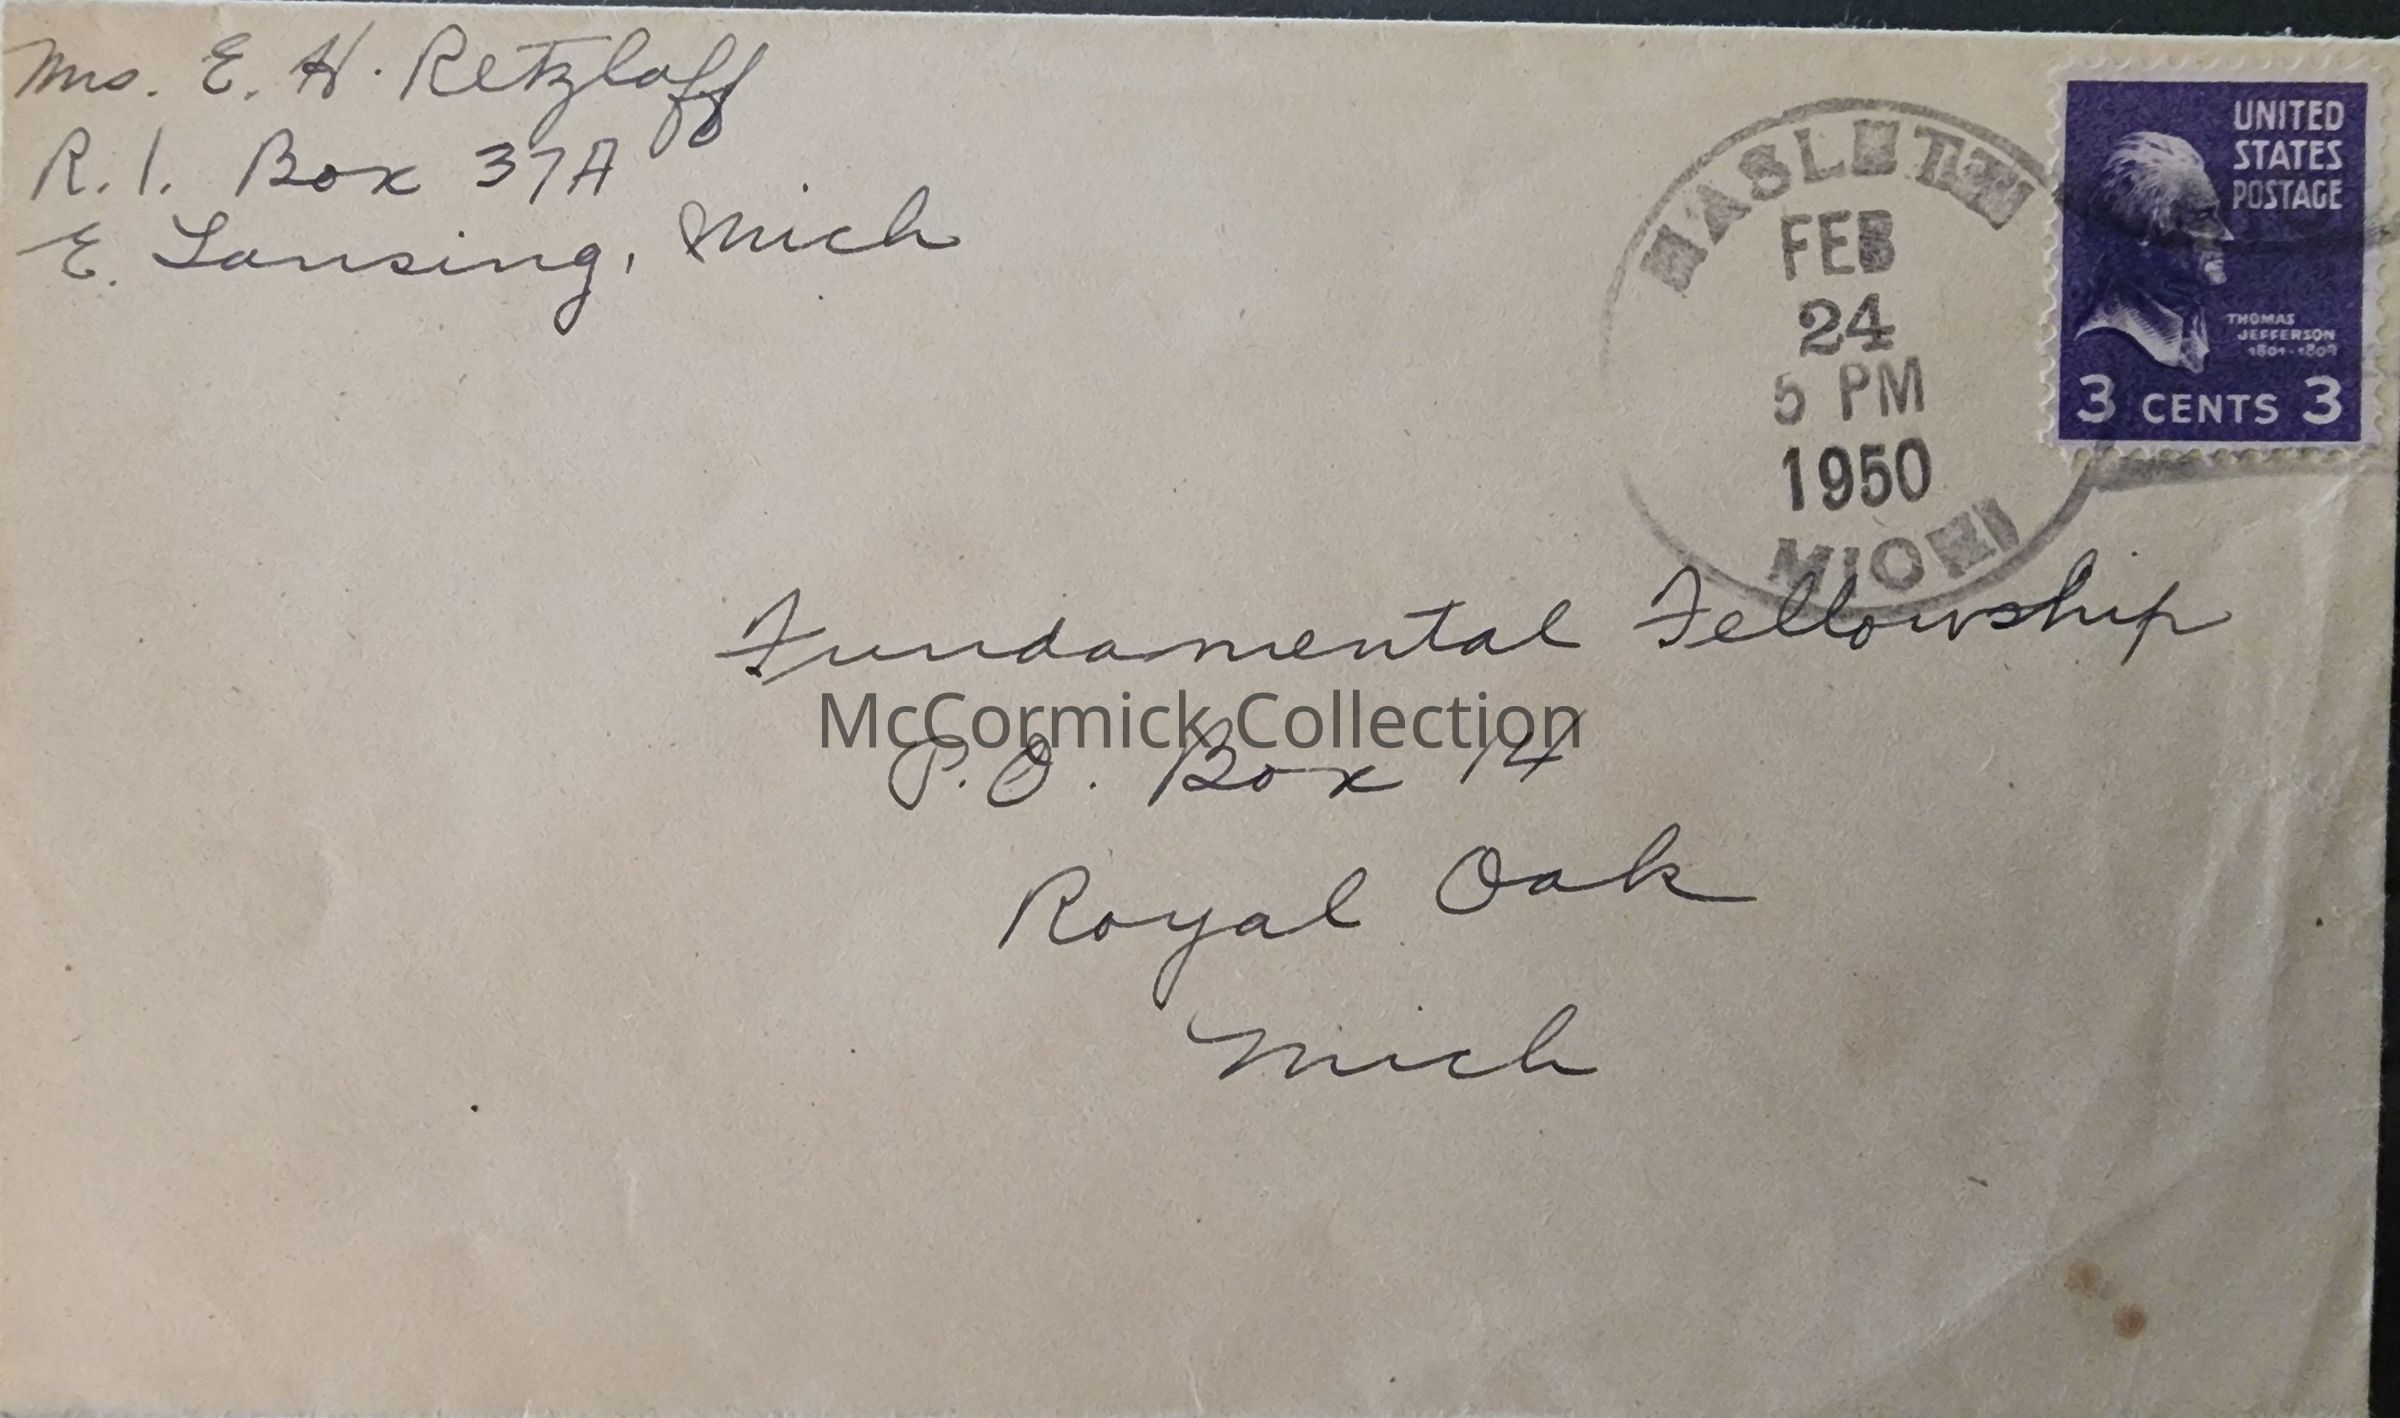 Mrs. E. H. Retzloff
R.1. Box 37A
E. Lansing, Mich
HASLETT
FEB
24
5 PM
1950
MICH
UNITED
STATES
POSTAGE
THOMAS
JEFFERSON
1801-1809
3 CENTS 3
Fundamental Fellowship
McCormick Collection
P.O. Box 14
Royal Oak
Mich